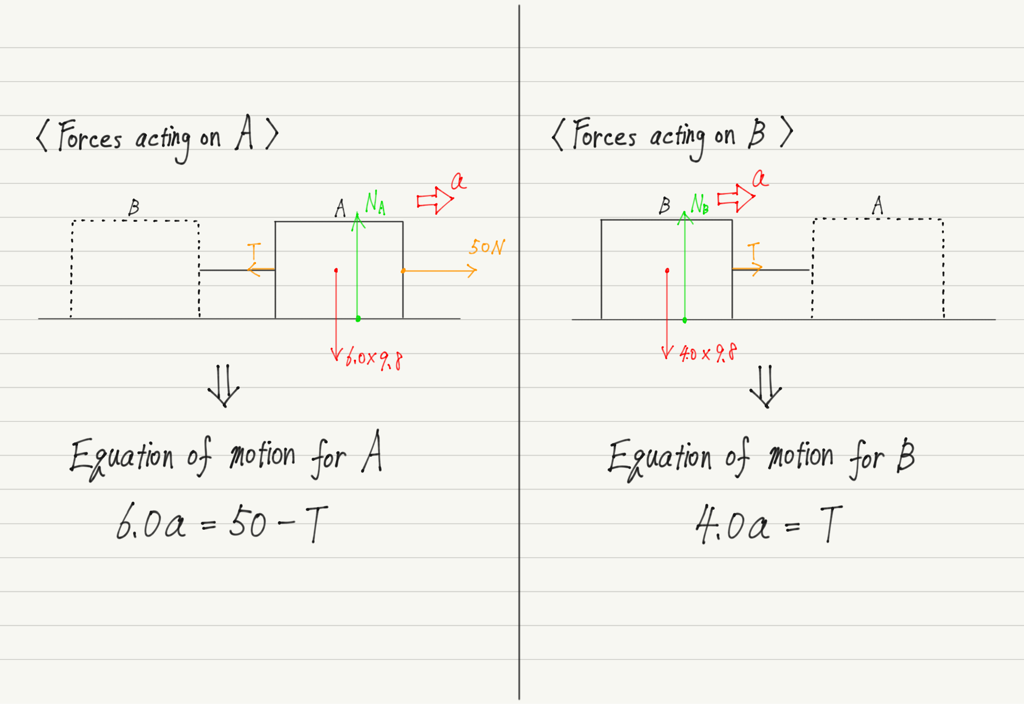 〈Forces acting on A〉
B
A
N_A
a
T
50N
6.0×9.8
⇓
Equation of motion for A
6.0a = 50 − T
〈Forces acting on B〉
B
N_B
a
A
T
4.0×9.8
⇓
Equation of motion for B
4.0a = T